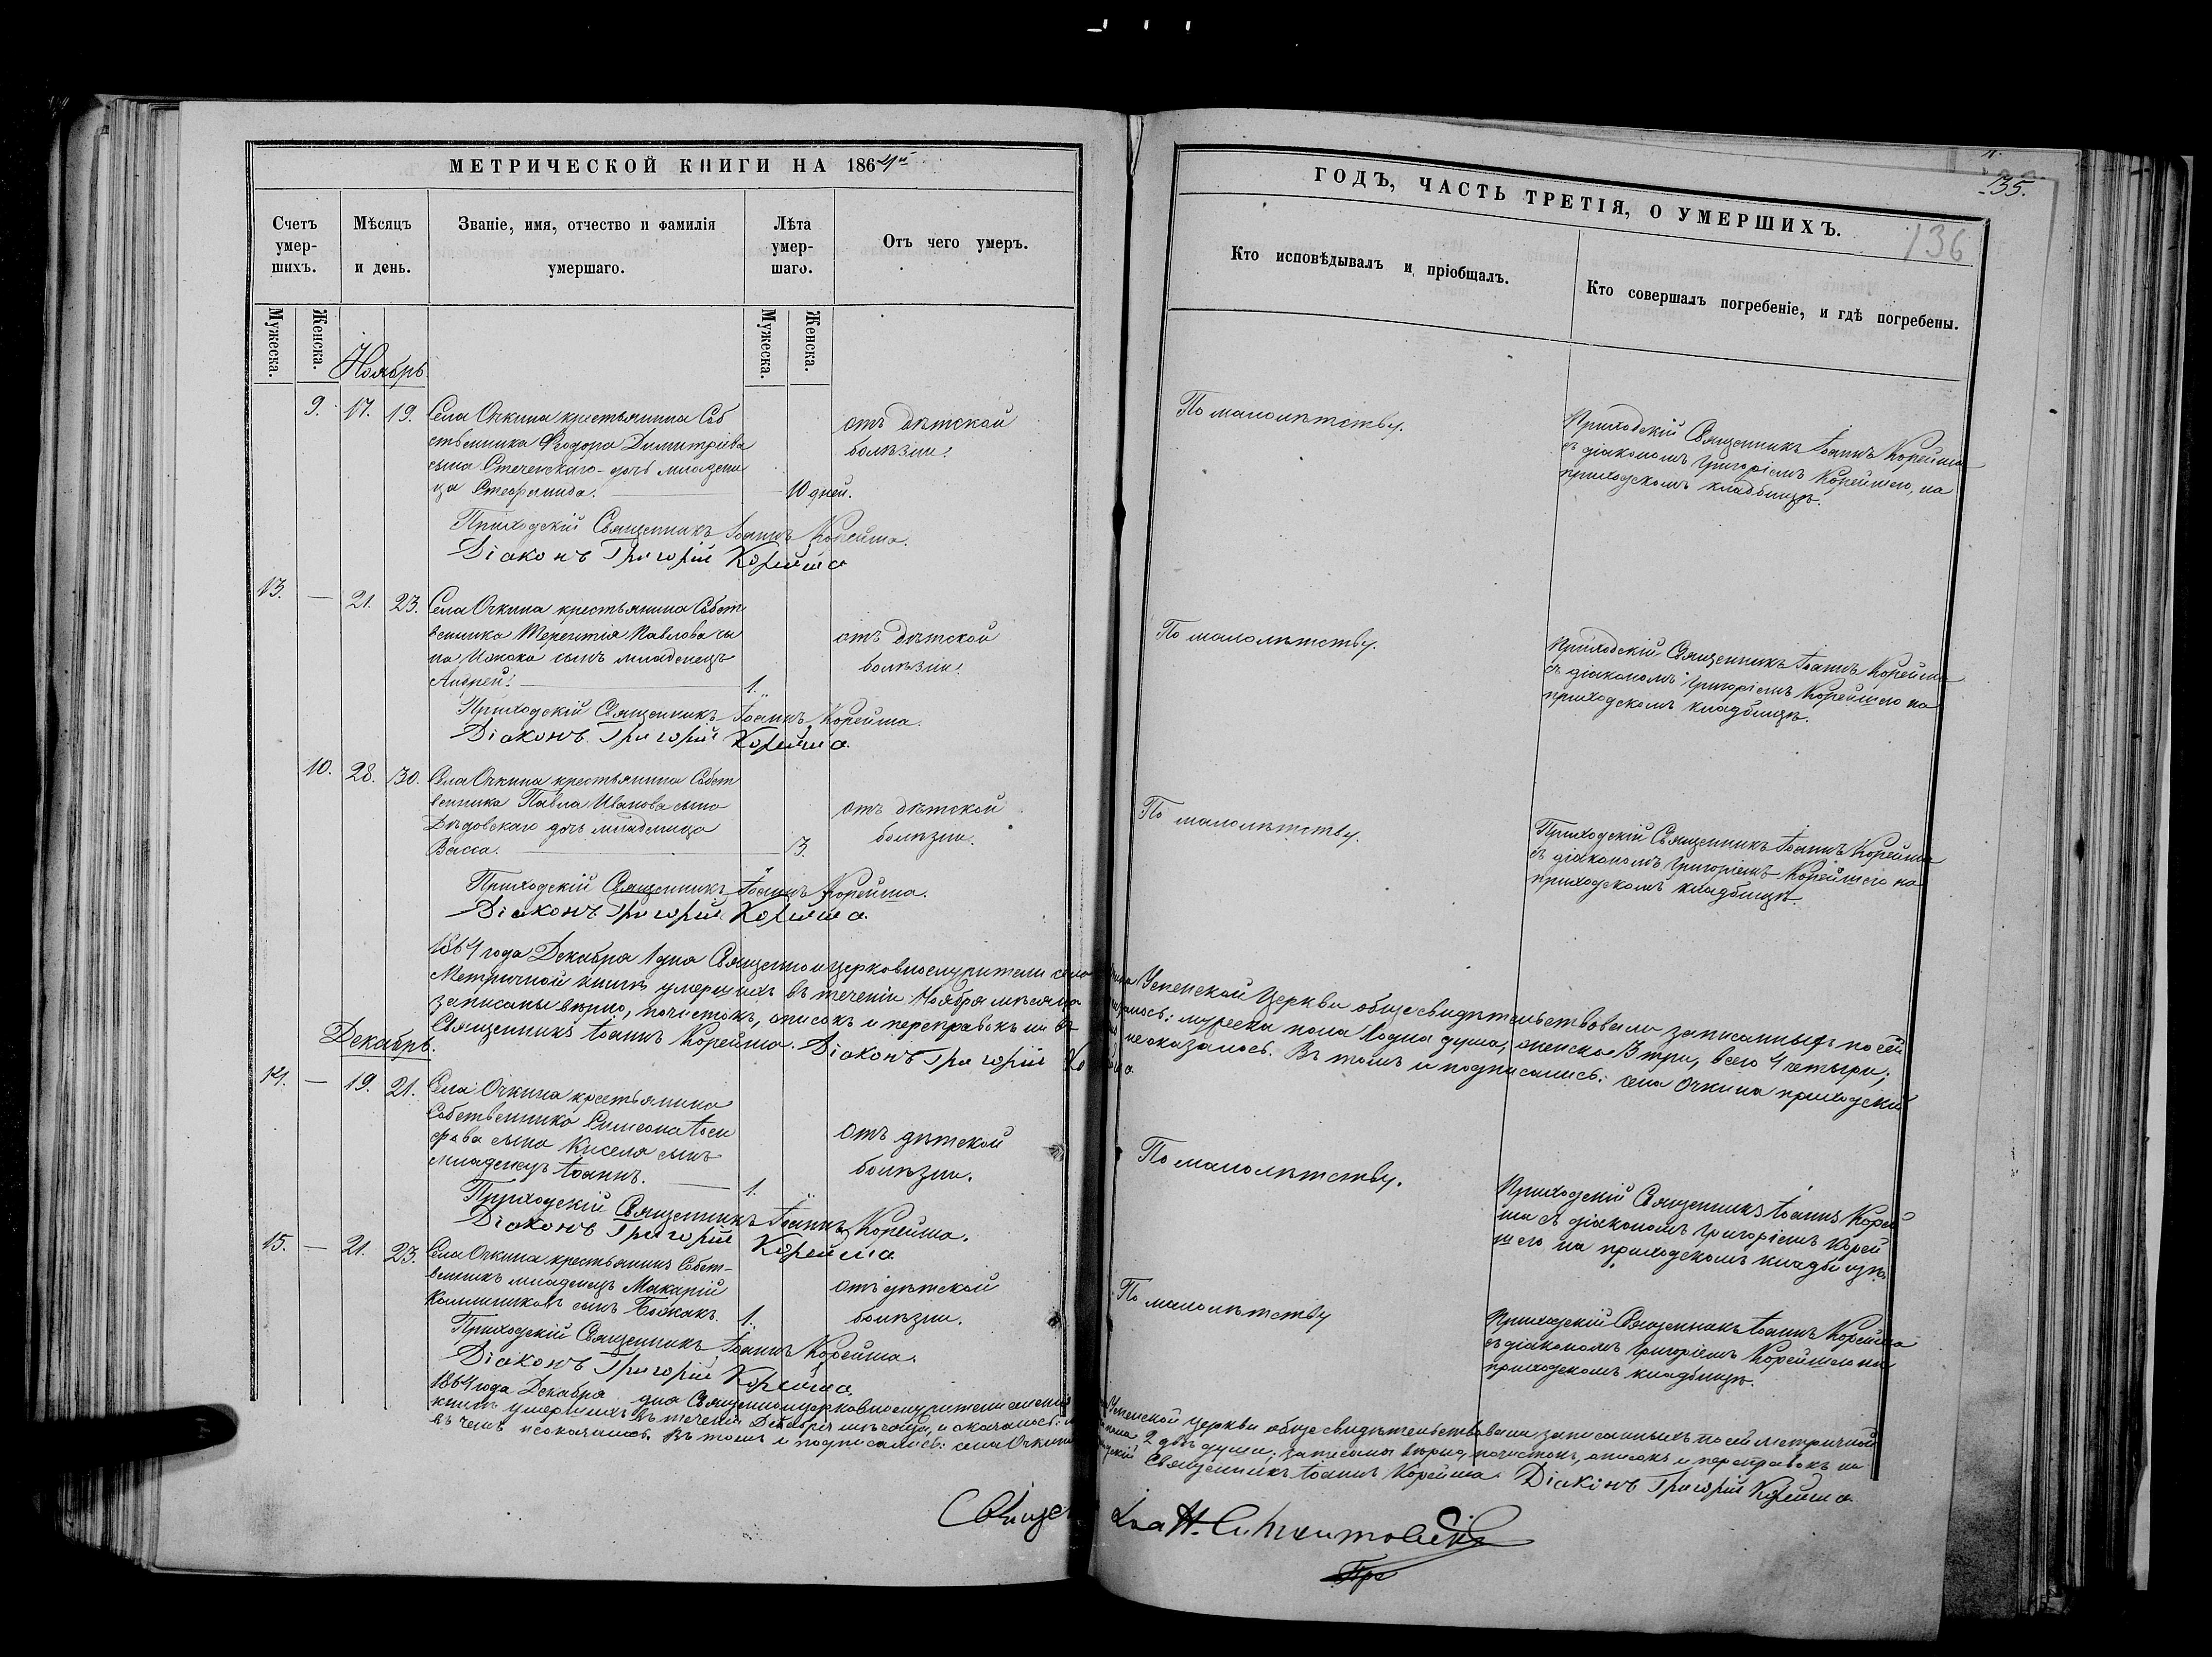 МЕТРИЧЕСКОЙ КНИГИ НА 1864й
Счетъ умер-шихъ.
Мѣсяцъ и день.
Званіе, имя, отчество и фамилія умершаго.
Лѣта умер-шаго.
Отъ чего умеръ.
Мужеска.
Женска.
Мужеска.
Женска.
Ноябрь.
9. 17. 19. Села Очкина крестьянина Соб
ственника Ѳеодора Димитріева
сына Стеченскаго дочь младени
ца Стефанида. 10 дней.
отъ дѣтской
болѣзни.
Приходскій Священникъ Іоаннъ Корейша.
Діаконъ Григорій Корейша
13. — 21. 23. Села Очкина крестьянина Собст
венника Терентія Павлова сы
на Изнока сынъ младенецъ
Андрей. 1.
отъ дѣтской
болѣзни.
Приходскій Священникъ Іоаннъ Корейша.
Діаконъ Григорій Корейша.
10. 28. 30. Села Очкина крестьянина Собст
венника Павла Иванова сына
Дѣдовскаго дочь младеница
Васса. 3.
отъ дѣтской
болѣзни.
Приходскій Священникъ Іоаннъ Корейша.
Діаконъ Григорій Корейша.
1864 года Декабря 1 дня Священно и церковнослужители села
Метричной книгѣ умершихъ въ теченіи Ноября мѣсяца
записаны вѣрно, почистокъ, описокъ и переправокъ ни въ
Священникъ Іоаннъ Корейша. Діаконъ Григорій Ко
Декабрь.
14. — 19. 21. Села Очкина крестьянина
Собственника Симеона Іоси
фова сына Киселя сынъ
младенецъ Іоаннъ. 1.
отъ дѣтской
болѣзни.
Приходскій Священникъ Іоаннъ Корейша.
Діаконъ Григорій Корейша
15. — 21. 23. Села Очкина крестьянинъ Собст-
венникъ младенецъ Макарій
сынъ 1.
отъ дѣтской
болѣзни.
Приходскій Священникъ Іоаннъ Корейша.
Діаконъ Григорій Корейша.
1864 года Декабря дня Священноицерковнослужители
книгѣ умершихъ въ теченіи Декабря мѣсяца, и оказалось:
въ чемъ неоказалось. Въ томъ и подписались: села Очкина
Священ
135.
ГОДЪ, ЧАСТЬ ТРЕТІЯ, О УМЕРШИХЪ.
136
Кто исповѣдывалъ и пріобщалъ.
Кто совершалъ погребеніе, и гдѣ погребены.
По малолѣтству.
Приходскій Священникъ Іоаннъ Корейша
съ діакономъ Григоріемъ Корейшею, на
приходскомъ кладбищѣ.
По малолѣтству.
Приходскій Священникъ Іоаннъ Корейша
съ діакономъ Григоріемъ Корейшею на
приходскомъ кладбищѣ.
По малолѣтству.
Приходскій Священникъ Іоаннъ Корейша
съ діакономъ Григоріемъ Корейшею на
приходскомъ кладбищѣ.
Успенской Церкви обще свидѣтельствовали записанныхъ по сей
мужеска пола 1 одна душа, женска 3 три, всего 4 четыри;
неоказалось. Въ томъ и подписались: села Очкина приходскій
По малолѣтству.
Приходскій Священникъ Іоаннъ Корей
ша съ діакономъ Григоріемъ Корей
шею на приходскомъ кладбищѣ.
По малолѣтству
Приходскій Священникъ Іоаннъ Корейша
съ діакономъ Григоріемъ Корейшею на
приходскомъ кладбищѣ.
Успенской церкви обще свидѣтельствовали записанныхъ по сей метричной
пола 2 двѣ души, записаны вѣрно, почистокъ, описокъ и переправокъ ни
Священникъ Іоаннъ Корейша. Діаконъ Григорій Корейша